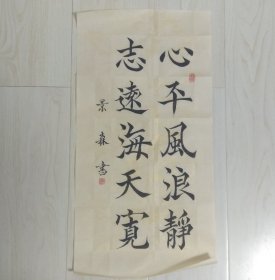 心平風浪靜
志遠海天寬
景森書